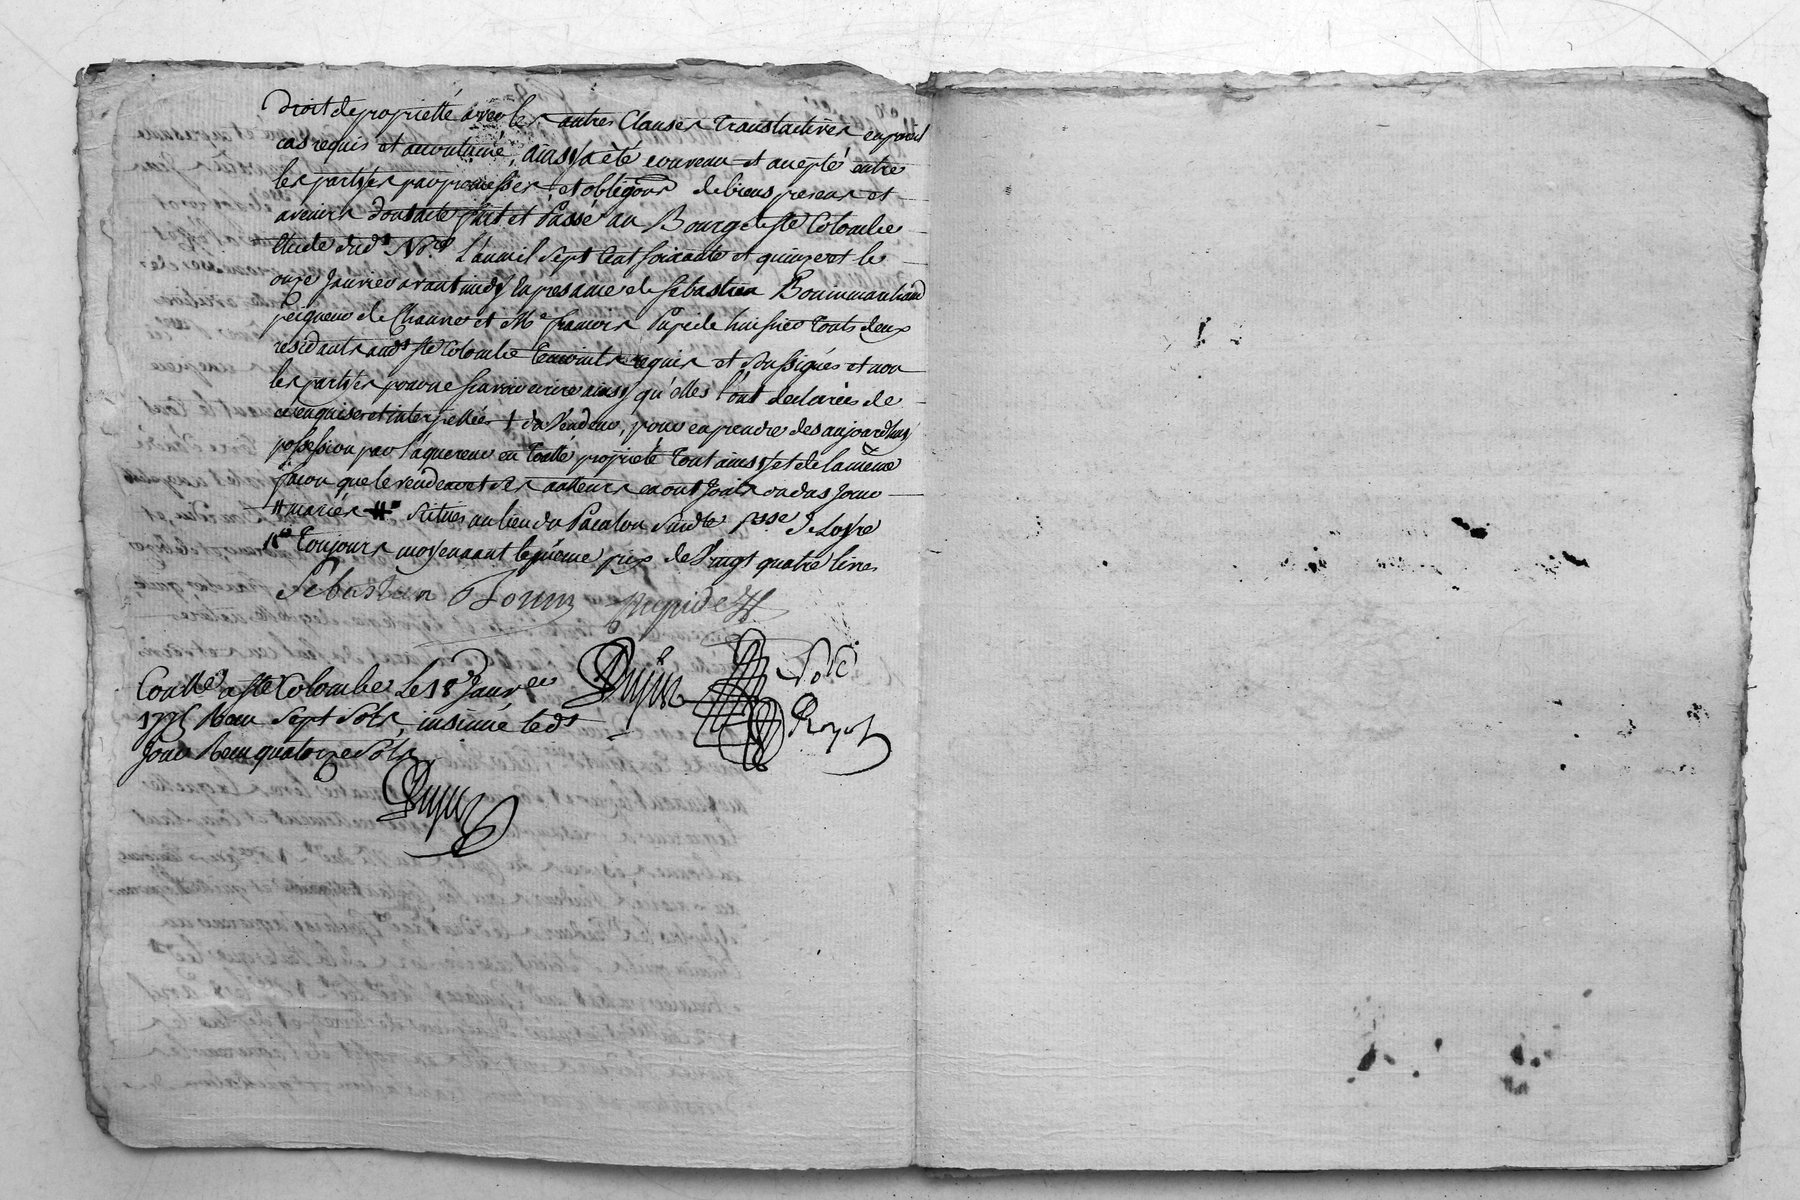 Droit de proprietté avec les autres Clauses Translatives en pareil
cas requis et accoutumé, ainsy a eté convenu et accepté entre
les partyes par promesses, et obligõns de biens presens et
avenirs dont acte fait et Passé au Bourg de Ste Colombe
Etude dudt Nre. L'an mil Sept Cent soixante et quinze et le
onze Janvier avant midy En presance de Sébastien Bonin marchand
peigneur de Chanvre et Me francois Pupide huissier touts deux
residants audt Ste Colombe temoints requis et soussignés et non
les partyes pour ne scavoir ecrire ainsy qu'elles l'ont declarées de
ce enquises et interpellées + du Vendeur, pour en prendre des aujourdhuy
possession par l'aquereur en Toutte proprieté tout ainsy et de la même
facon que le vendeur et ses autteurs en ont Jouis ou du Jouir
# mariés # situés au lieu du Pacalon Susdte psse de Loyre
toujours moyennant le même prix de Vingt quatre livres
Sébastien Bonin Pupide
Dupin
Conllé a Ste Colombe Le 18 Janver
1775 Reçu Sept Sols, insinué ledt
Jour Reçu quatorze Sols
Dupin